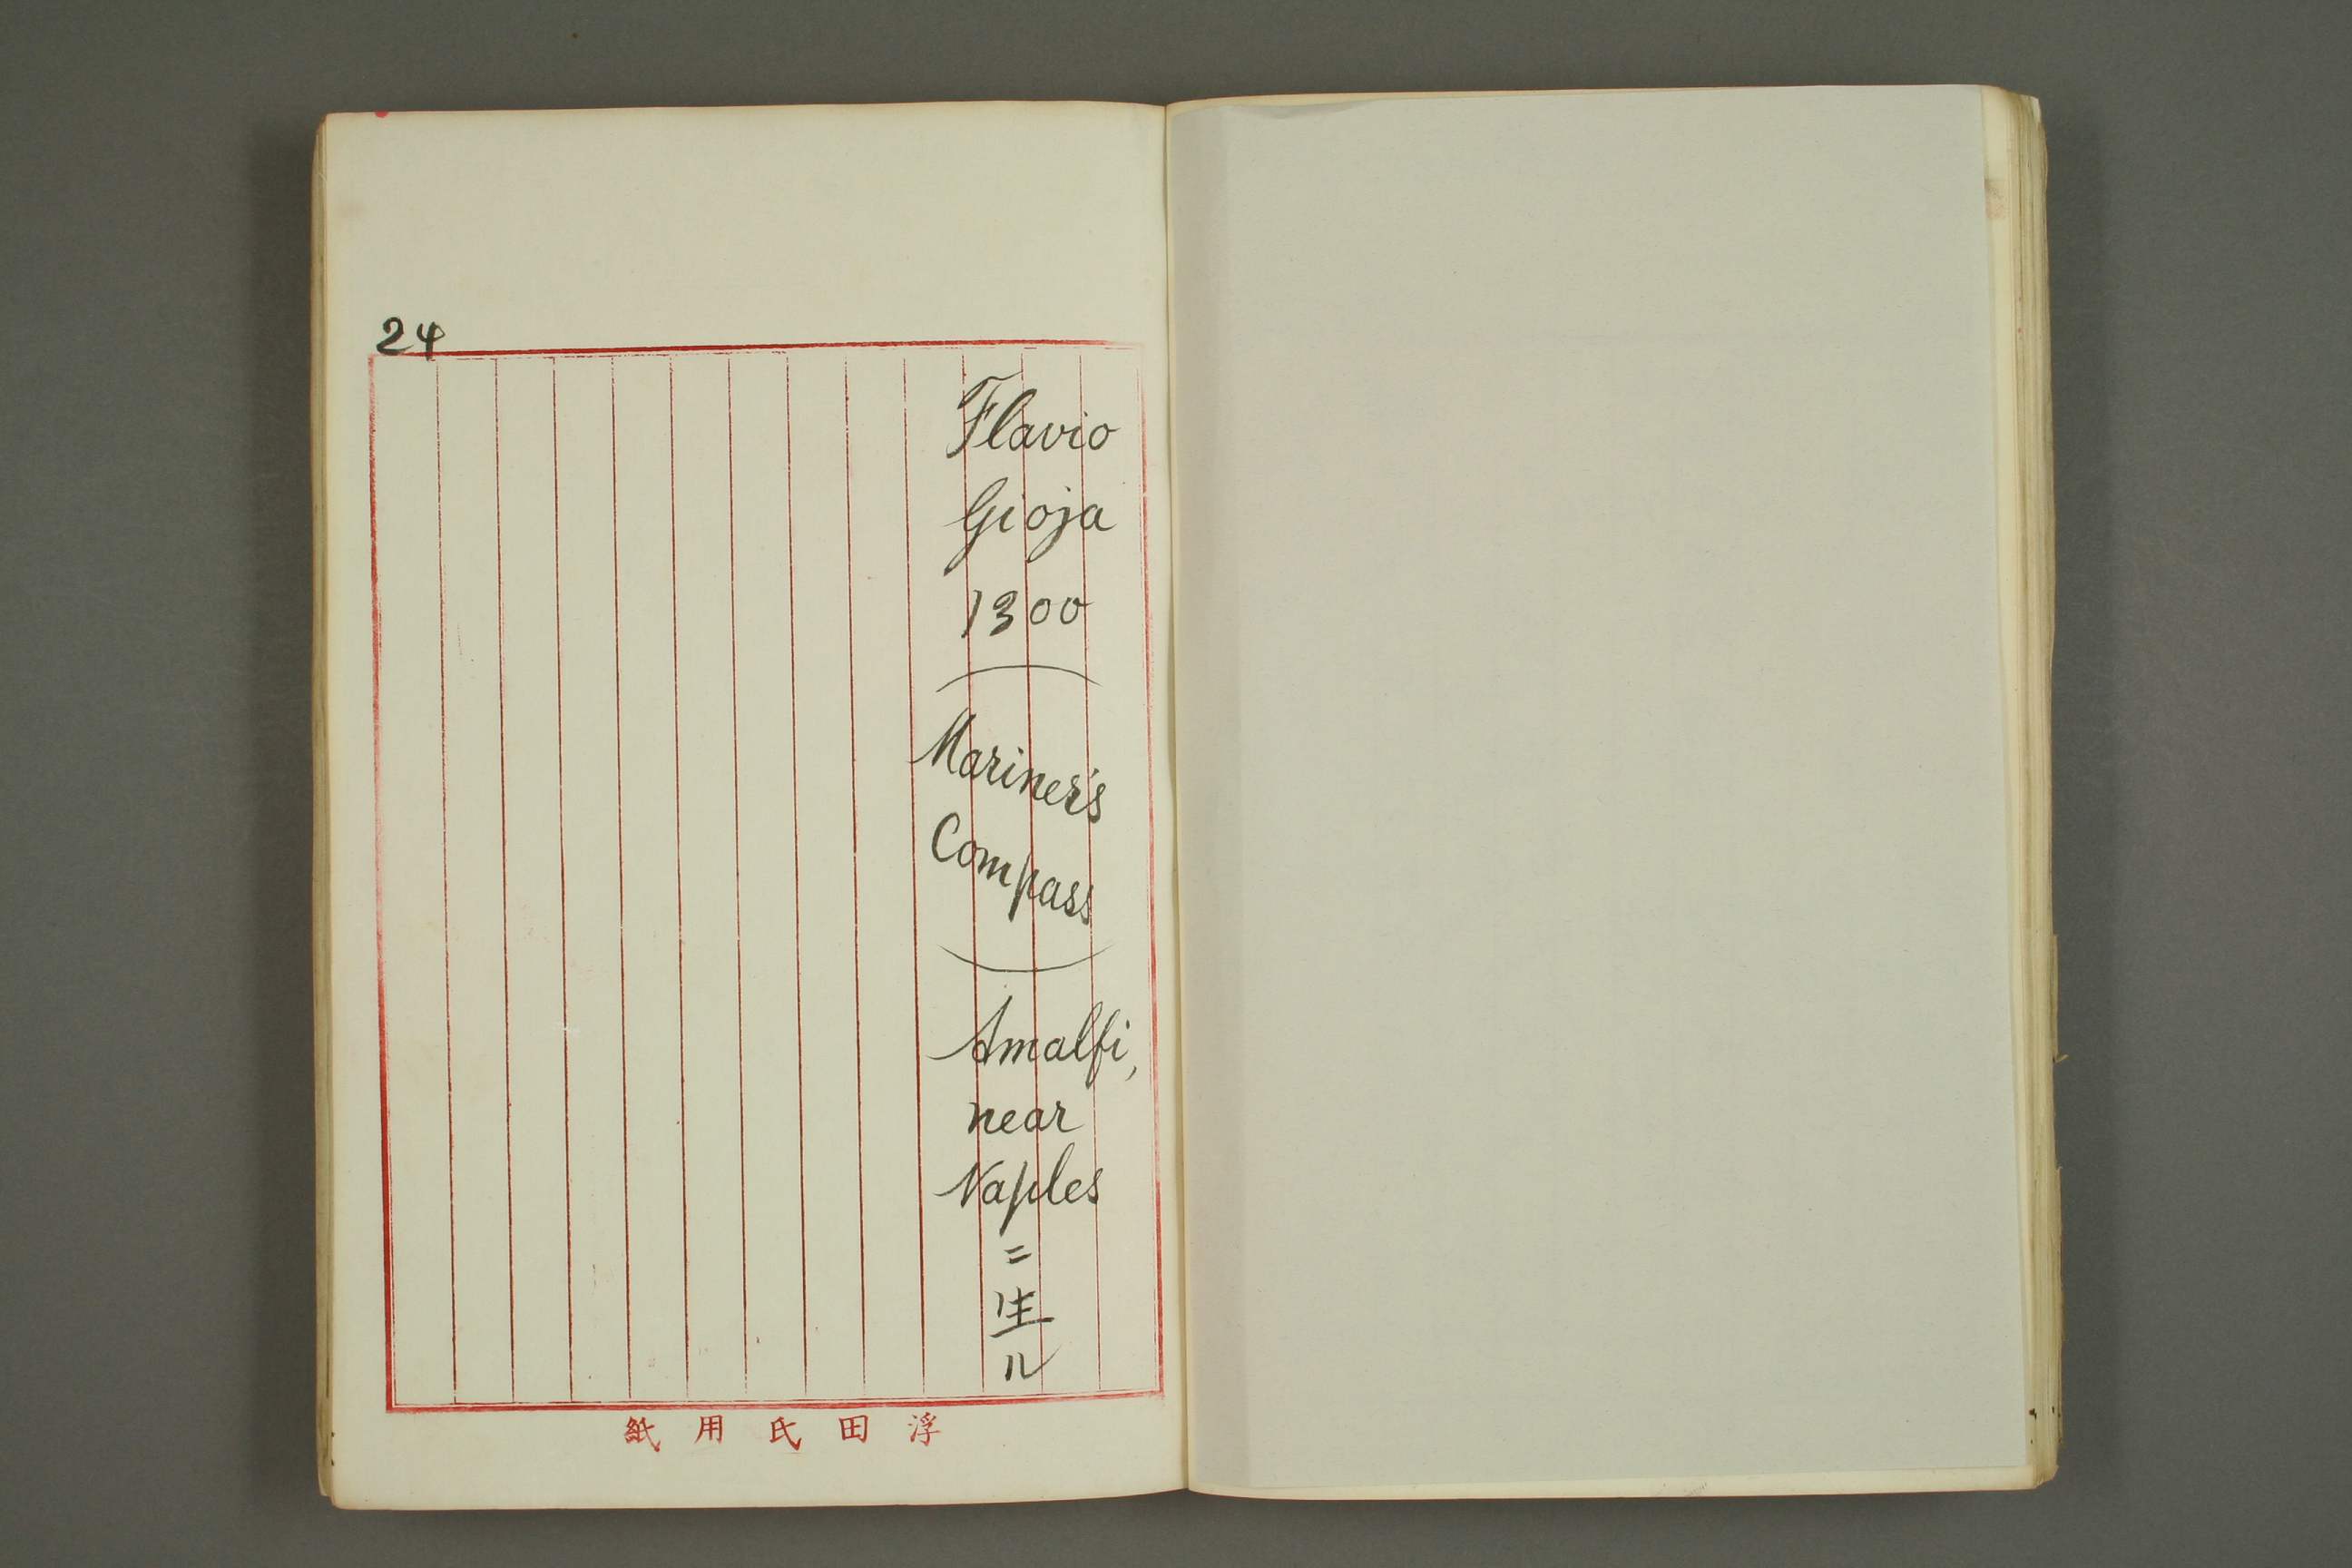 24
Flavio
Gioja
1300
(
Mariner's
Compass
)
Amalfi,
near
Naples
ニ
生
ル
浮田氏用紙